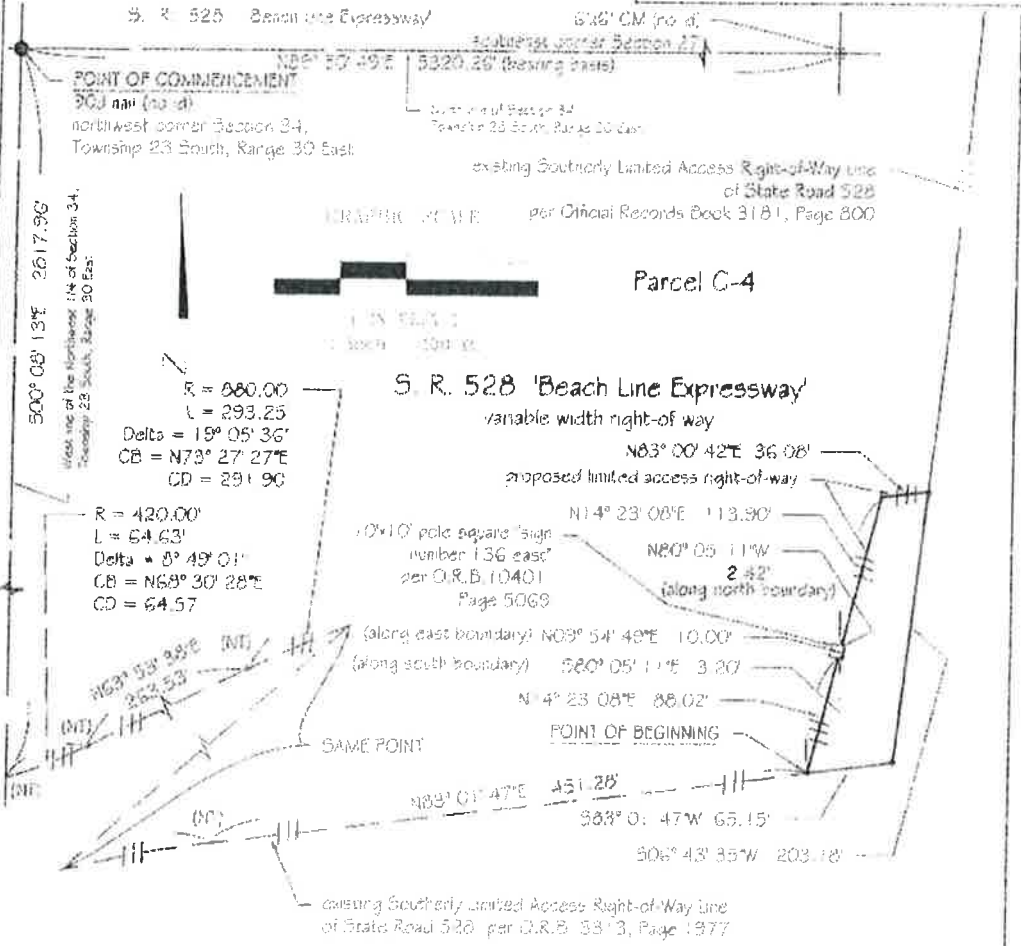 S. R. 528 Beach Line Expressway
6"x6" CM (no id)
southeast corner Section 27
5320.26' (bearing basis)
POINT OF COMMENCEMENT
nail (no id)
northwest corner Section 34,
Township 23 South, Range 30 East
of Section 34
Township 23 South, Range 30 East
existing Southerly Limited Access Right-of-Way Line
of State Road 528
per Official Records Book 3181, Page 800
S00° 08' 13"E 2617.96'
West line of the Northwest 1/4 of Section 34,
Township 23 South, Range 30 East
GRAPHIC SCALE
Parcel C-4
R = 880.00
L = 293.25
Delta = 19° 05' 36"
CB = N73° 27' 27"E
CD = 291.90
S. R. 528 'Beach Line Expressway'
variable width right-of way
N83° 00' 42"E 36.08'
proposed limited access right-of-way
R = 420.00'
L = 64.63'
Delta = 8° 49' 01"
CB = N68° 30' 28"E
CD = 64.57
10'x10' pole square "sign
number 136 east"
per O.R.B. 10401
Page 5069
N14° 23' 08"E 113.90'
N80° 05' 11"W
2.42'
(along north boundary)
(along east boundary) N09° 54' 49"E 10.00'
(along south boundary) S80° 05' 11"E 3.20'
N14° 23' 08"E 88.02'
N63° 53' 38"E
263.53'
(NT)
(NT)
(NT)
SAME POINT
POINT OF BEGINNING
N83° 01' 47"E 451.28'
(NT)
S83° 01' 47"W 65.15'
S06° 43' 35"W 203.18'
existing Southerly Limited Access Right-of-Way Line
of State Road 528 per O.R.B. 3313, Page 1977